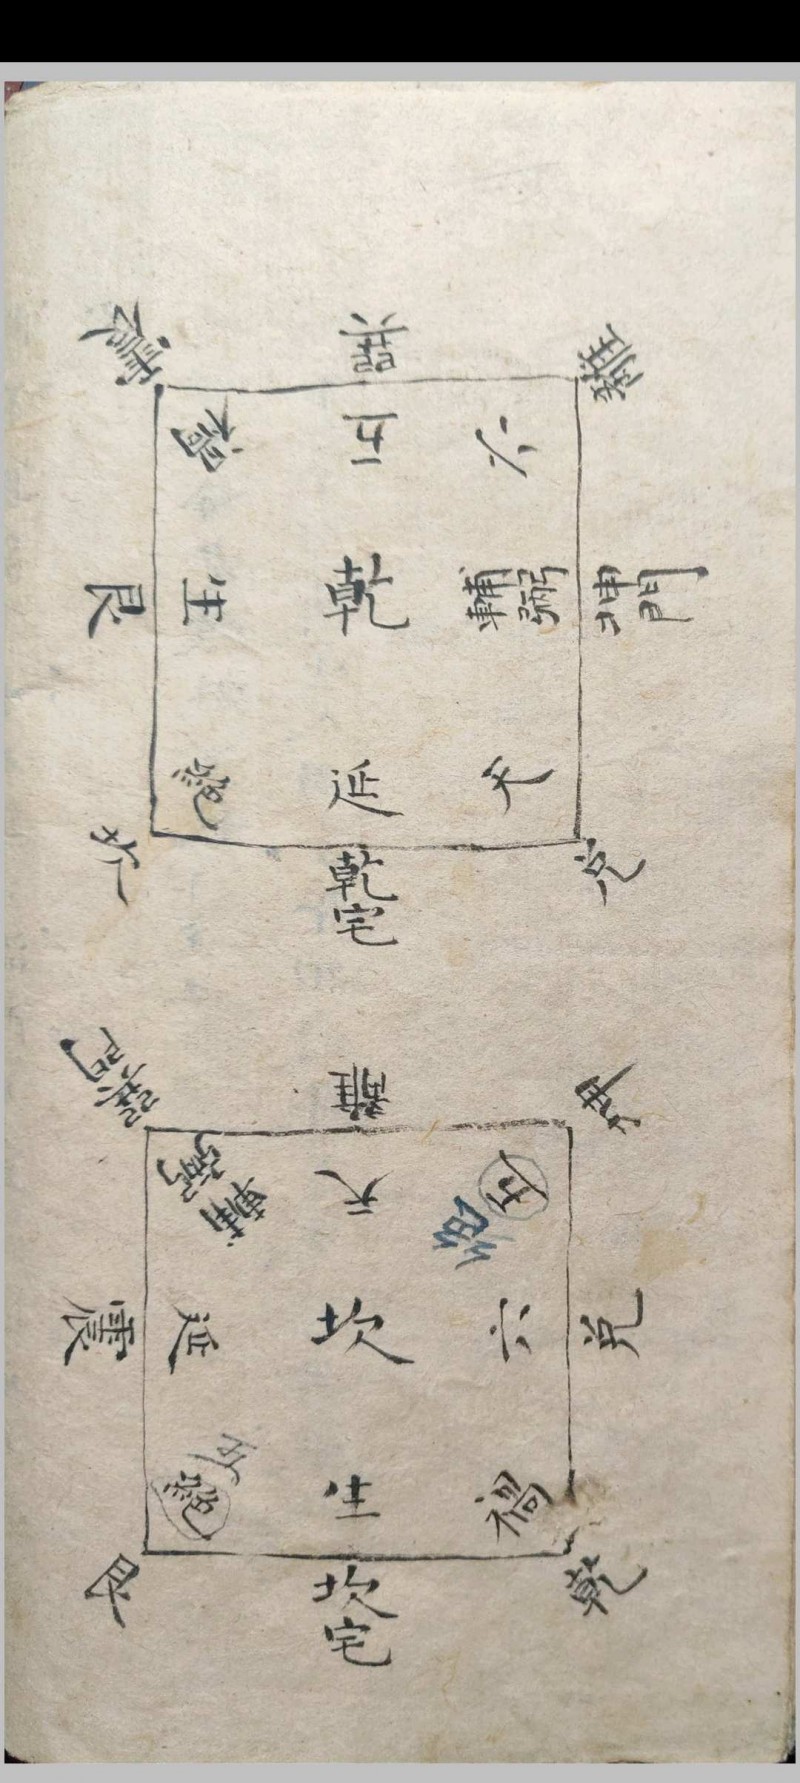 震
巽
離
禍
五
六
艮
生
乾
輔弼
坤門
絕
延
天
坎
兌
乾宅
巽門
離
坤
輔弼
天
五
絕
震
延
坎
六
兌
五
絕
生
禍
艮
乾
坎宅